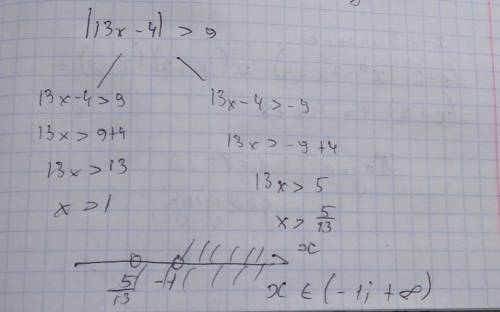 |13x-4| > 9
13x-4>9
13x-4>-9
13x > 9+4
13x > -9+4
13x > 13
13x > 5
x > 1
x > 5/13
x
5/13 -1
x ∈ (-1; +∞)